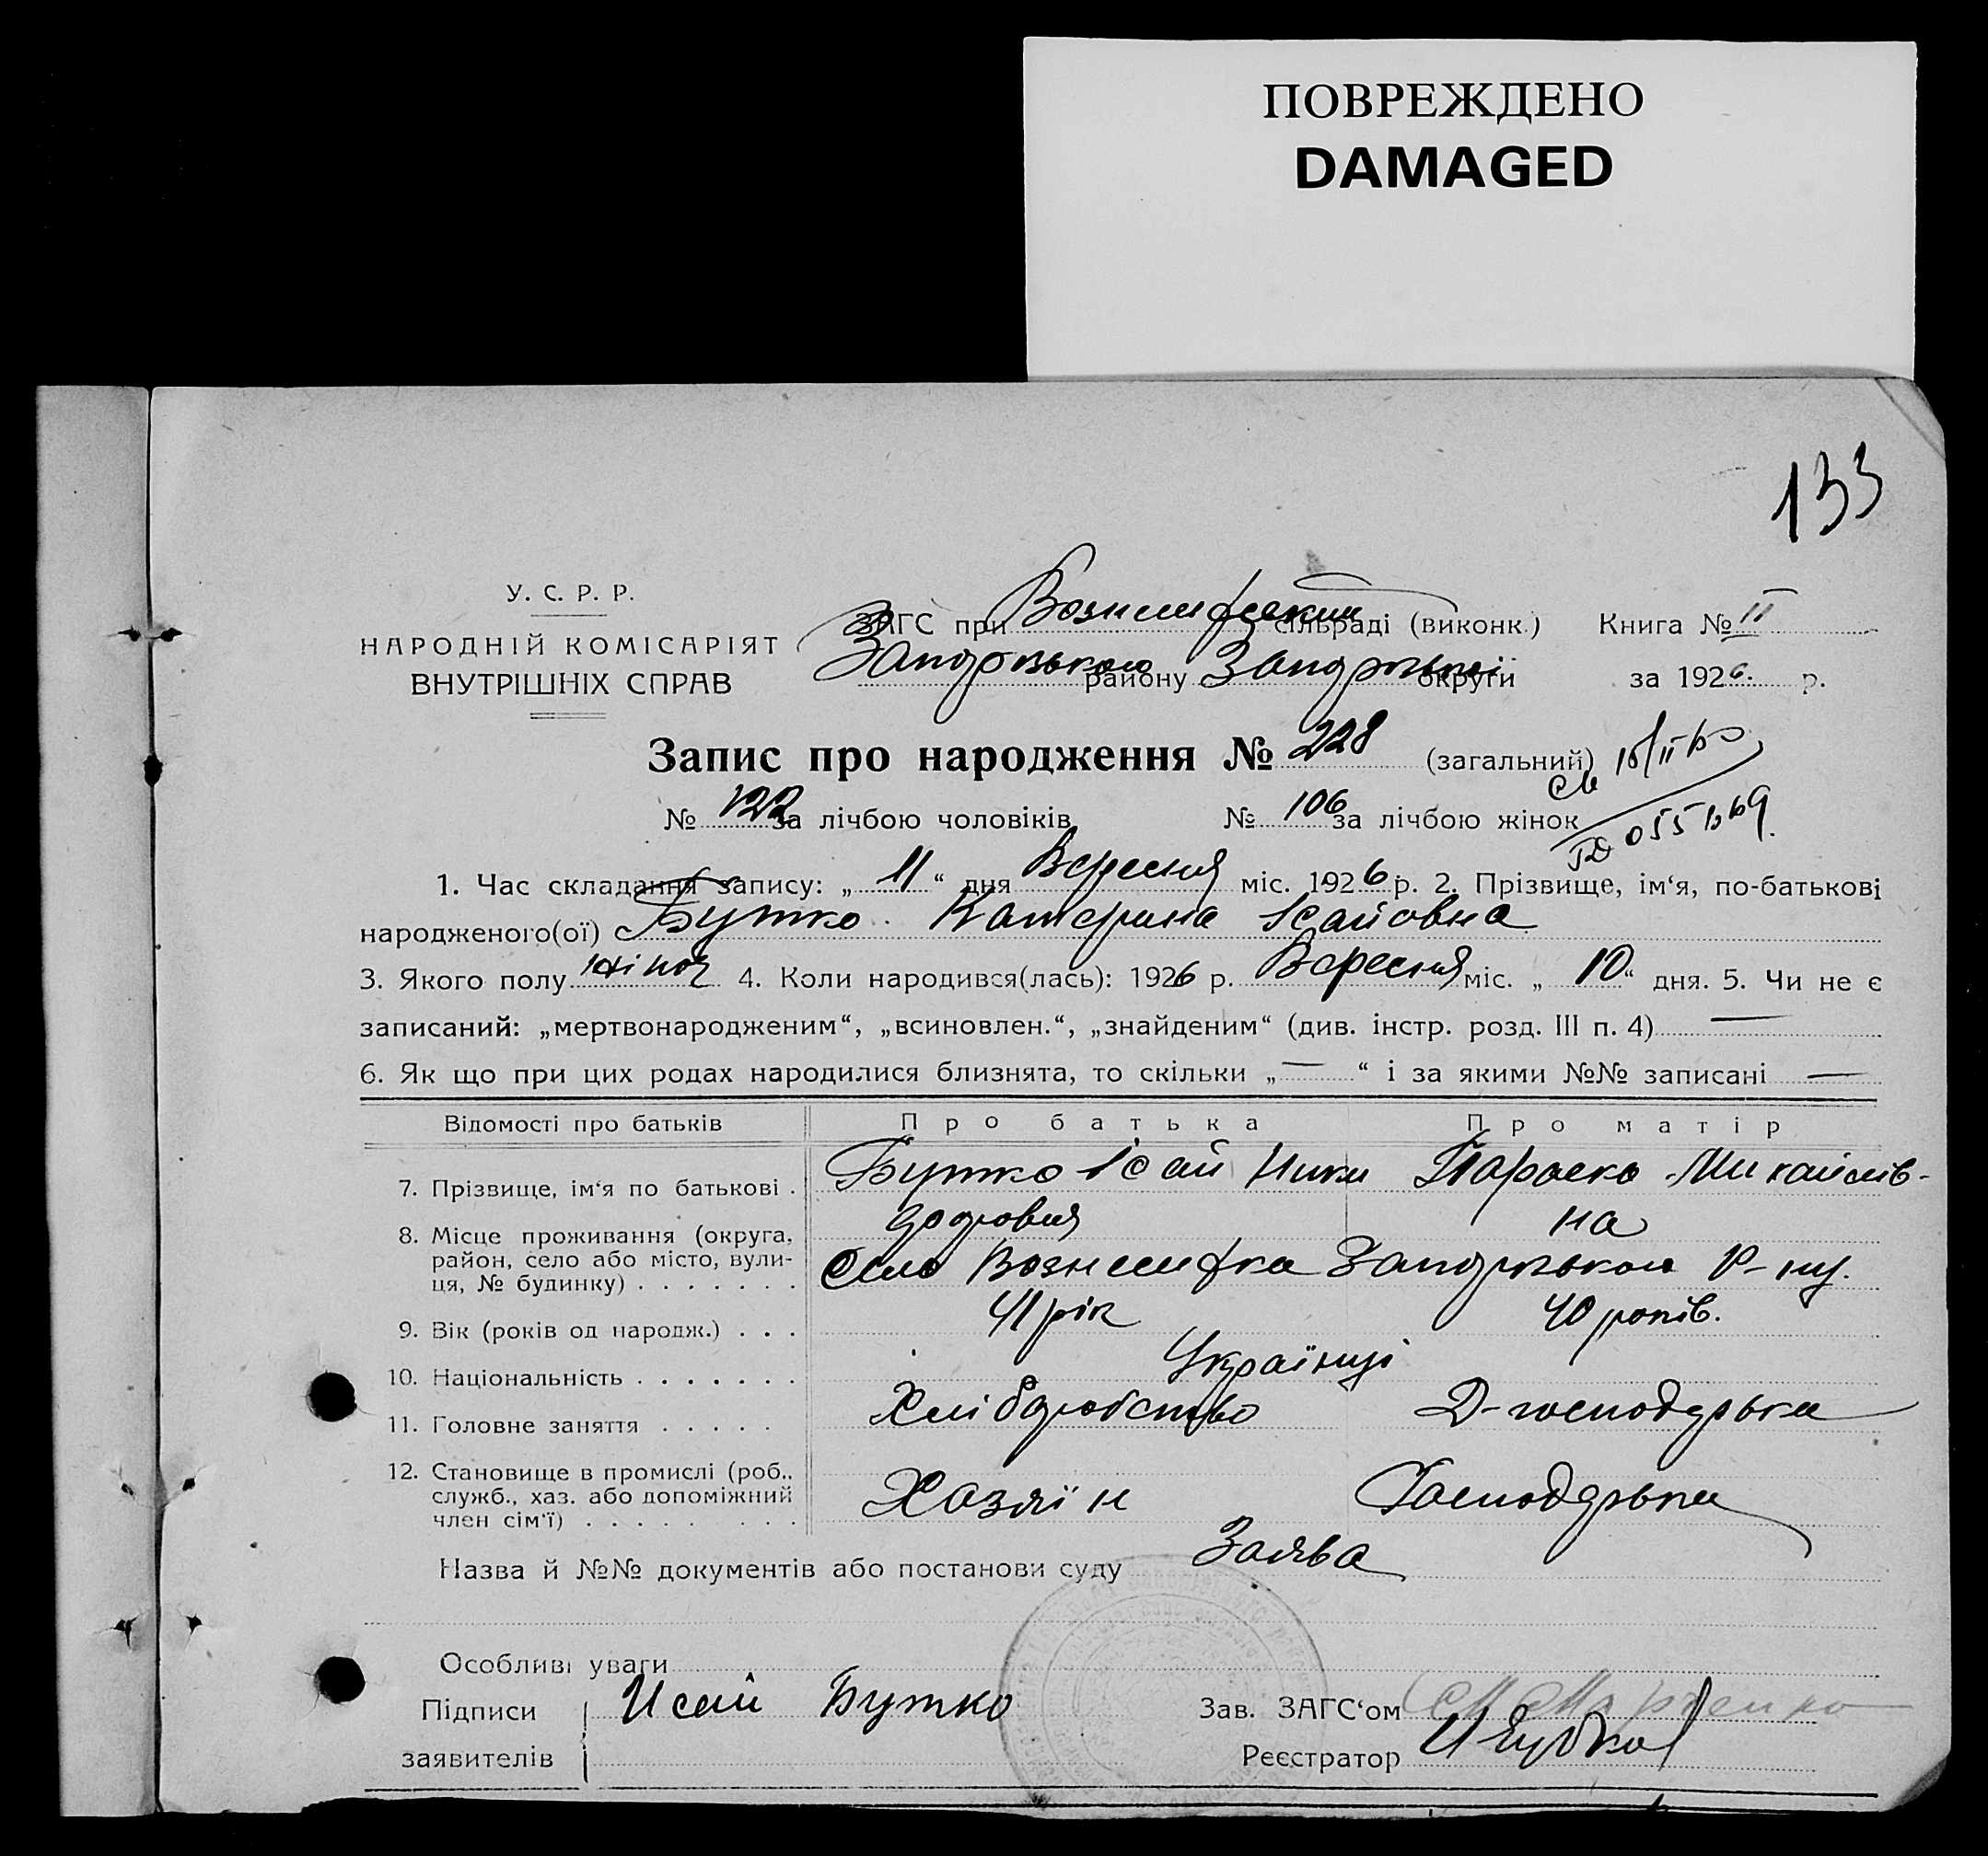 ПОВРЕЖДЕНО
DAMAGED
133
У. С. Р. Р.
НАРОДНІЙ КОМІСАРІЯТ
ВНУТРІШНІХ СПРАВ
ЗАГС при Вознесенський сільраді (виконк.) Книга № II
Запорізького району Запорізької округи за 1926. р.
Запис про народження № 228 (загальний)
№ 122 за лічбою чоловіків № 106 за лічбою жінок
1. Час складання запису: „ 11 “ дня Вересня міс. 1926 р. 2. Прізвище, ім‘я, по-батькові
народженого(ої) Бутко Катерина Ісайовна
3. Якого полу жіноч 4. Коли народився(лась): 1926 р. Вересня міс. „ 10 “ дня. 5. Чи не є
записаний: „мертвонародженим“, „всиновлен.“, „знайденим“ (див. інстр. розд. III п. 4) —
6. Як що при цих родах народилися близнята, то скільки „ — “ і за якими №№ записані —
Відомості про батьків Про батька Про матір
7. Прізвище, ім‘я по батькові . Бутко Ісай Ники Параска Михайлів-
дорович на
8. Місце проживання (округа,
район, село або місто, вули-
ця, № будинку) . . . . . . . Село Вознесенка Запорізького Р-ну.
9. Вік (років од народж.) . . . 41 рік 40 років.
10. Національність . . . . . . . Українці
11. Головне заняття . . . . . Хліборобство Д-господарка
12. Становище в промислі (роб.,
служб., хаз. або допоміжний
член сім‘ї) . . . . . . . . Хазяїн Господарка
Назва й №№ документів або постанови суду Заява
Особливі уваги
Підписи Исай Бутко Зав. ЗАГС‘ом
заявителів Реєстратор